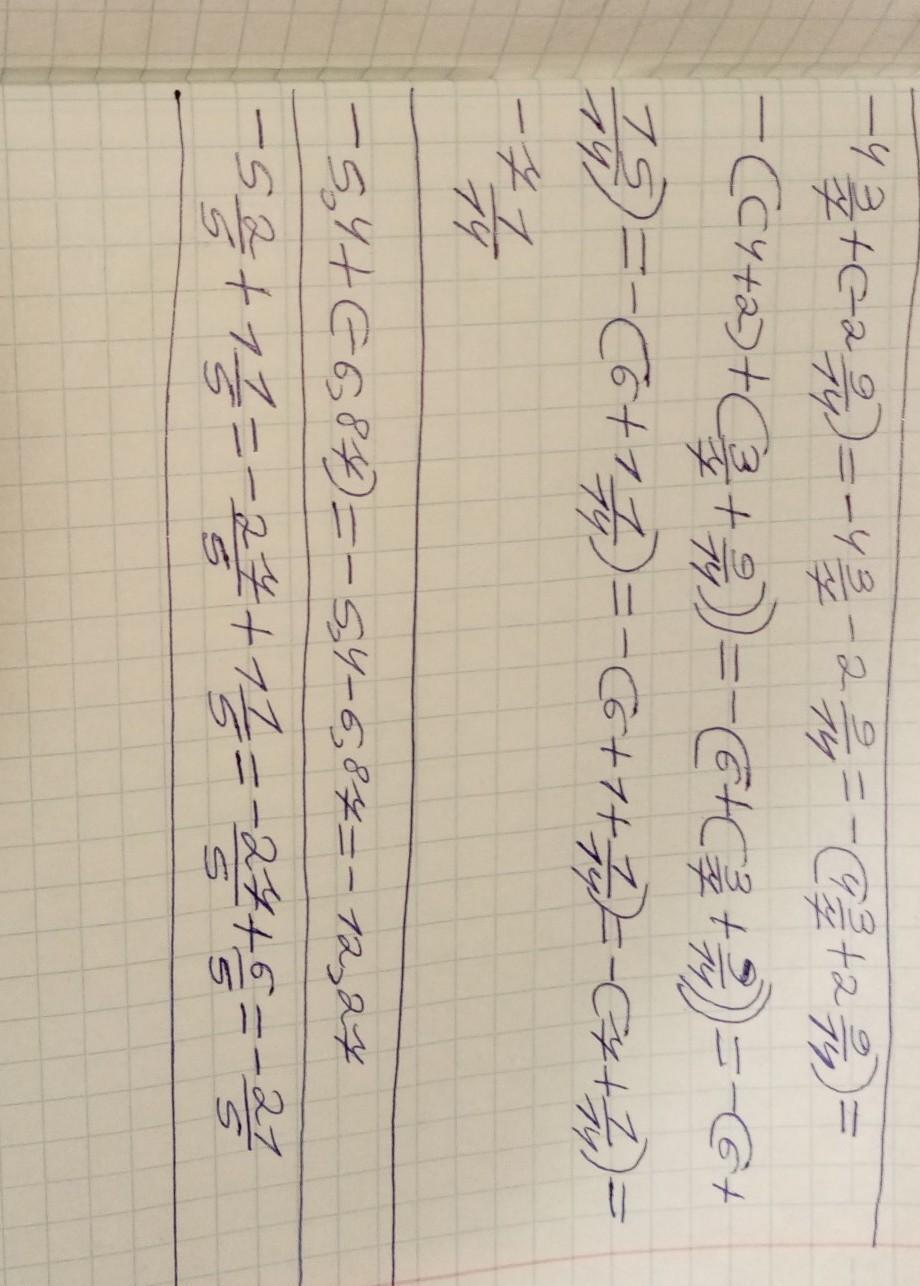 -4 3/7 + (-2 9/14) = -4 3/7 - 2 9/14 = -(4 3/7 + 2 9/14) =
-((4+2) + (3/7 + 9/14)) = -(6 + (3/7 + 9/14)) = -(6 +
15/14) = -(6 + 1 1/14) = -(6 + 1 + 1/14) = -(7 + 1/14) =
-7 1/14
-5,4 + (-6,87) = -5,4 - 6,87 = -12,27
-5 2/5 + 1 1/5 = -27/5 + 1 1/5 = -27/5 + 6/5 = -21/5